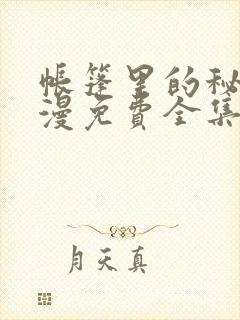 帐篷里的秘
漫免费全集
月天真